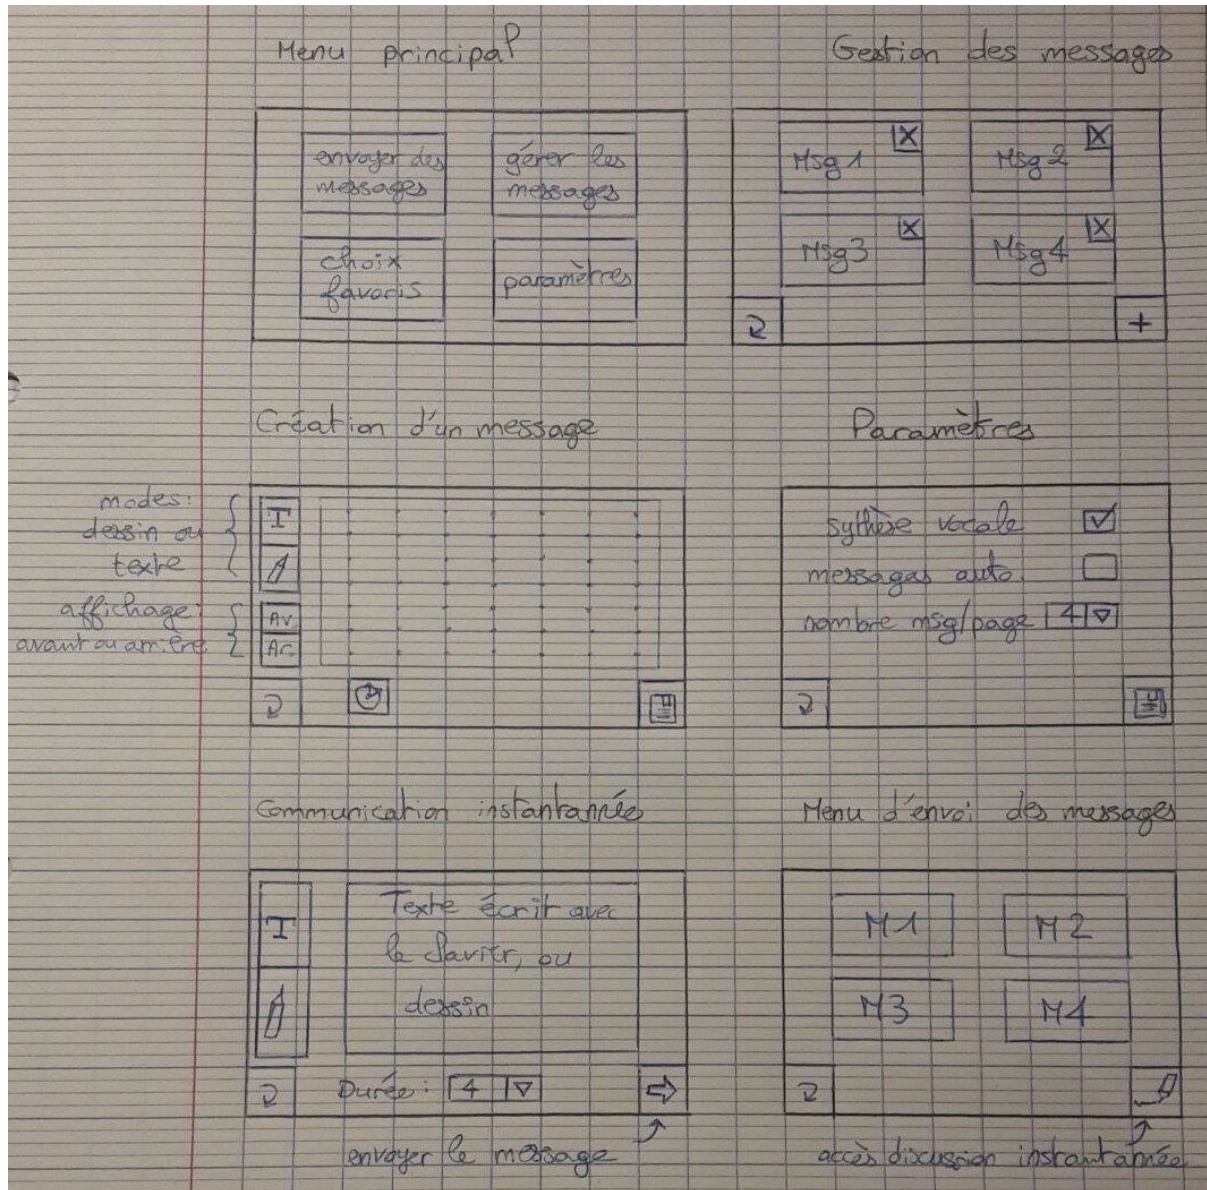 Menu principal
envoyer des
messages
gérer les
messages
choix
favoris
paramètres
Gestion des messages
Msg 1
X
Msg 2
X
Msg3
X
Msg4
X
+
Création d'un message
modes:
dessin ou
texte
affichage:
avant ou arrière
T
Av.
Ar.
Paramètres
sythèse vocale
messages auto.
nombre msg/page 4
Communication instantannée
T
Texte écrit avec
le clavier, ou
dessin
Durée: 4
envoyer le message
Menu d'envoi des messages
M1
M2
M3
M4
accès discussion instantannée